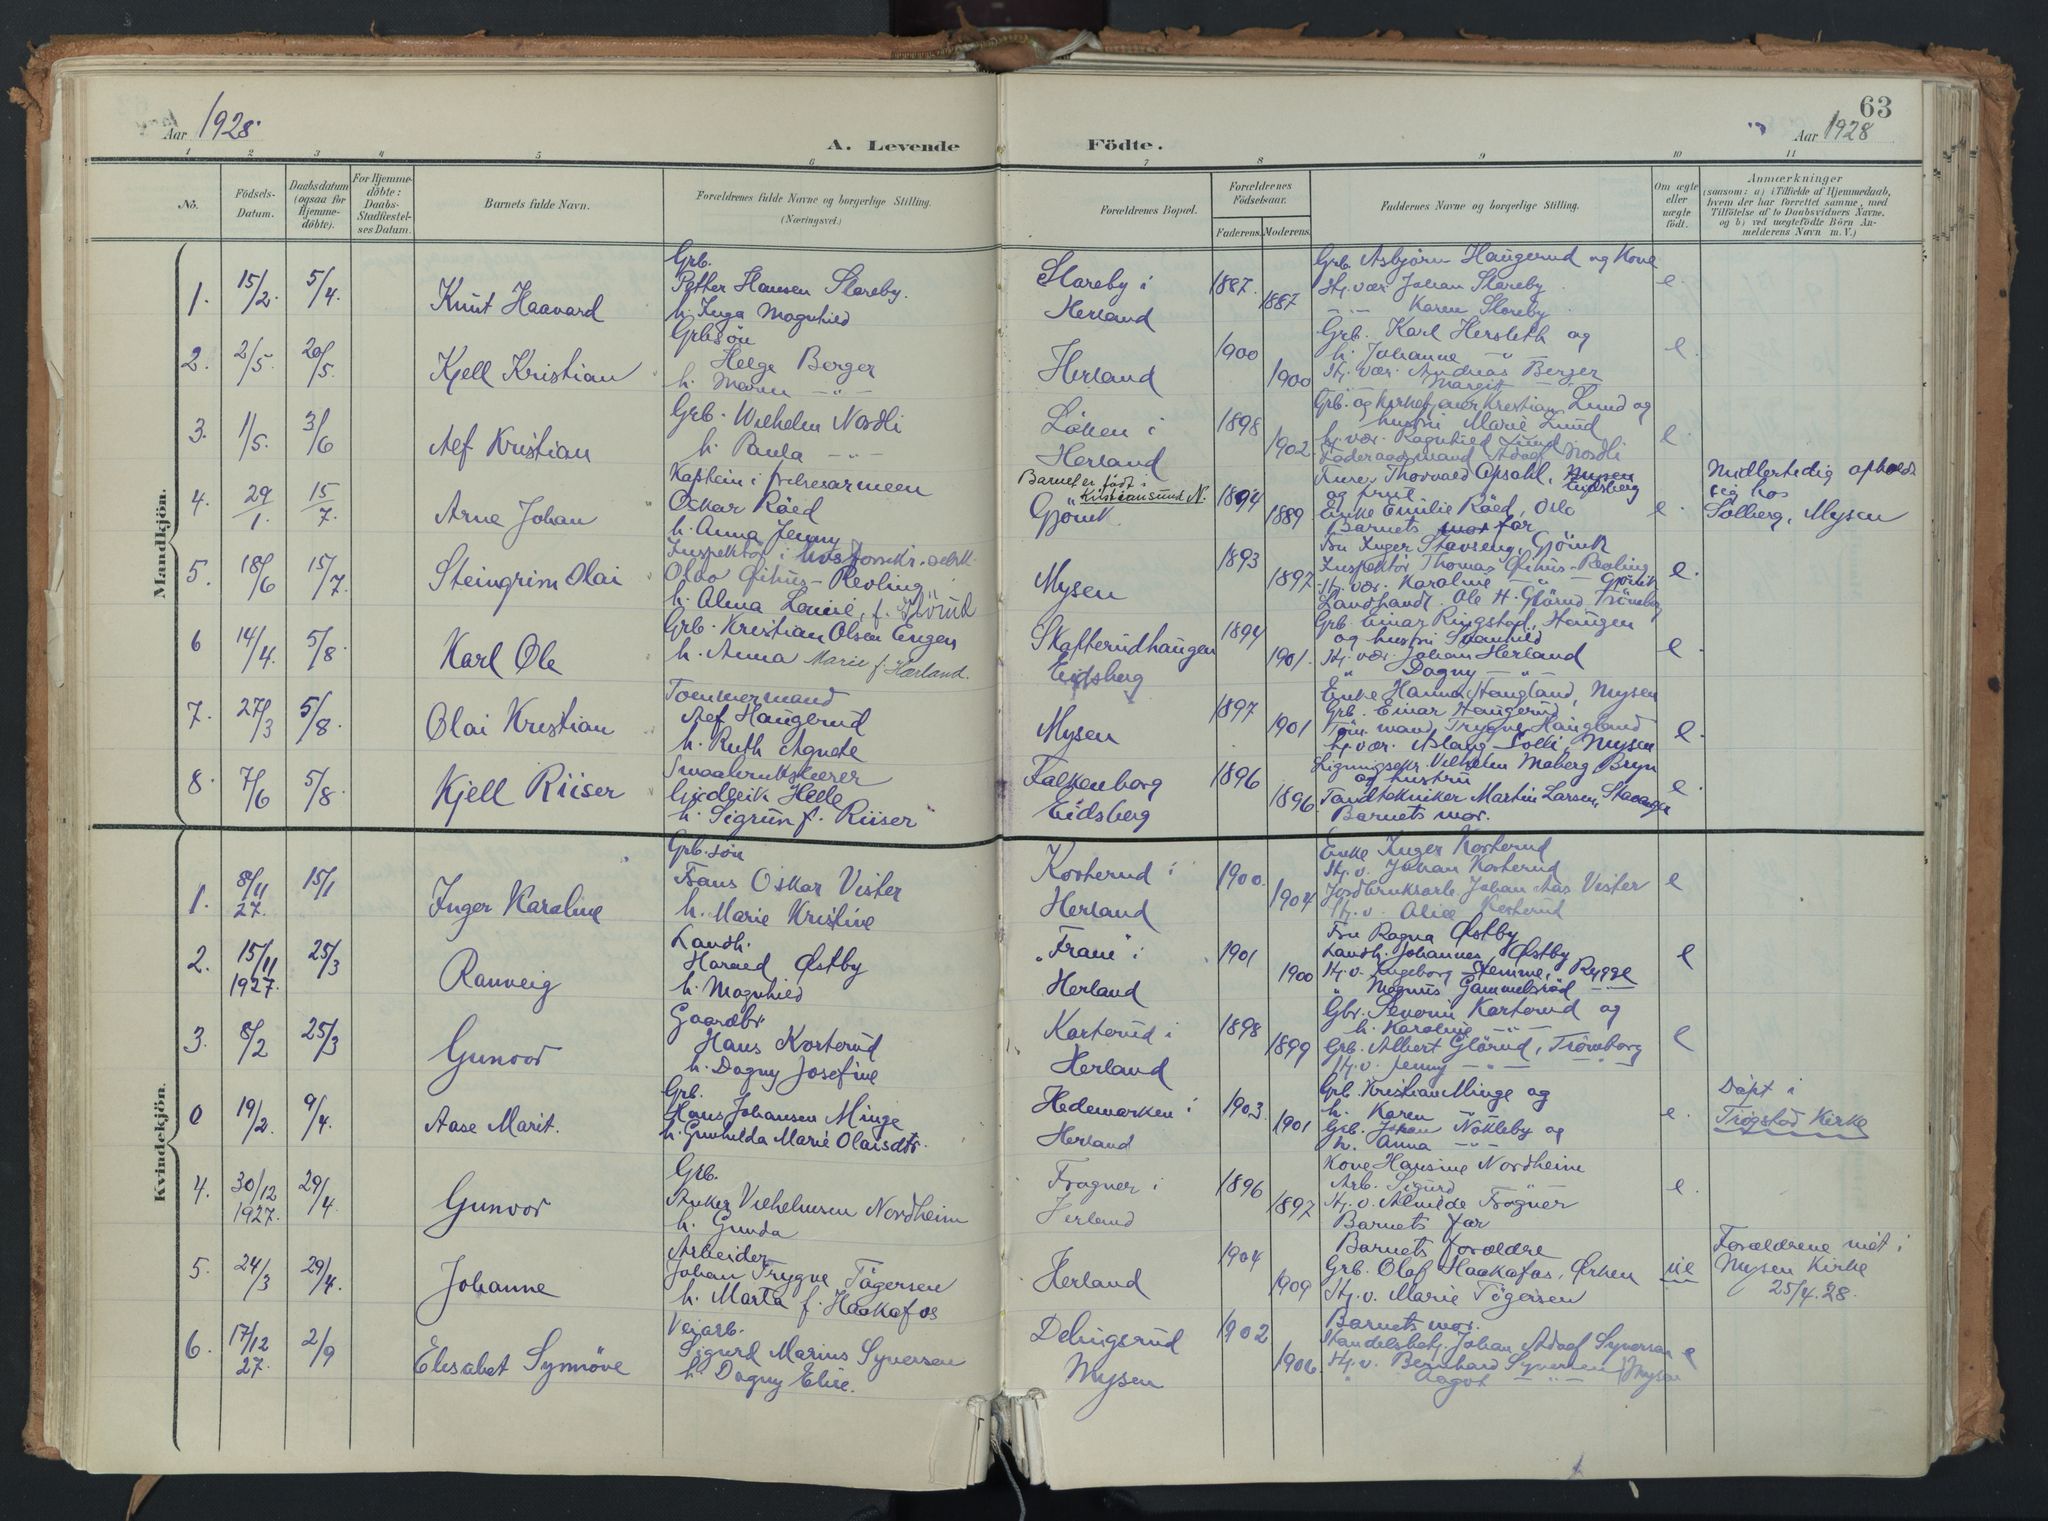 63
Aar 1928.
A. Levende Födte.
Aar 1928
1 2 3 4 5 6 7 8 9 10 11
No.
Födsels-Datum.
Daabsdatum (ogsaa for Hjemme-döbte).
For Hjemme-döbte: Daabs-Stadfæstel-ses Datum.
Barnets fulde Navn.
Forældrenes fulde Navne og borgerlige Stilling. (Næringsvei.)
Forældrenes Bopæl.
Forældrenes Födselsaar.
Faderens. Moderens.
Faddernes Navne og borgerlige Stilling.
Om ægte eller uægte födt.
Anmærkninger
(saasom: a) i Tilfælde af Hjemmedaab, hvem der har forrettet samme, med Tilföielse af to Daabsvidners Navne, og b) ved uægtefödte Börn An-melderens Navn m. V.)
Mandkjön.
1. 15/2. 5/4. Knut Haavard
Grb.
Petter Hansen Sloreby.
h. Inga Magnhild
Sloreby i
Herland
1887. 1887
Grb. Asbjörn Haugerud og Kone
Hj. vær. Johan Sloreby
-"- Karen Sloreby.
e.
2. 2/5. 20/5. Kjell Kristian
Grb.sön
Helge Berger
h. Maren -"-
Herland
1900 1900
Grb. Karl Hersleth og
h. Johanne -"-
Hj. vær. Andreas Berger
Margit -"-
e.
3. 1/5. 3/6 Alf Kristian
Grb. Wilhelm Nordli
h. Paula -"-
Löken i
Herland
1898 1902.
Grb. og kirketjener Kristian Lund og
hustru Marie Lund
hj. vær. Ragnhild Lund
Föderaadsmand Adolf Nordli
e.
4. 29/1. 15/7. Arne Johan
Kaptein i frelsesarmeen
Oskar Röed
h. Anna Jenny
Barnet er födt i
Kristiansund N.
Gjövik.
1894 1889
Thorvald Opsahl, Mysen
Eidsberg
og frue
Enke Emilie Röed, Oslo
Barnets morfar
e.
Midlertidig opholdt
sig hos
Solberg, Mysen
5. 18/6 15/7. Steingrim Olai
Inspektör i
Olav Qihus-Revling
h. Alma Louise, f.
Mysen
1893 1897
Fru Inger Stavseng, Gjövik
Inspektör Thomas Qihus-Revling
Hj. vær. Karoline -"- Gjövik
Landhandl. Ole H. Glörud Trömborg
e.
6 14/4. 5/8. Karl Ole
Grb. Kristian Olsen Engen
h. Anna Marie f. Hærland.
Skofterudhaugen
Eidsberg
1894 1901.
Grb. Einar Ringstad, Haugen
og hustru Svanhild
Hj. vær. Johan Herland
" Dagny -"-
e.
7. 27/3 5/8. Olai Kristian
Tommermand
Alf Haugerud
h. Ruth Agnete
Mysen
1897 1901
Enke Hanna Haugland, Mysen
Grb. Einar Haugerud,
Töm.mand Trygve Haugland
hj. vær. Aslaug Solli, Mysen
e.
8. 7/6 5/8. Kjell Riiser
Smaabruksleærer
Gudleik Helle
h. Sigrun f. Riiser
Falkenborg
Eidsberg
1896 1896.
Ligningssekr. Vilhelm Moberg Bryn
og hustru
Tandtekniker Martin Larsen, Stavanger
Barnets mor.
e.
Kvindekjön.
1. 8/11 27. 15/1 Inger Karoline
Grb. sön
Frans Oskar Vister
h. Marie Kristine
Korterud i
Herland
1900. 1904
Enke Inger Korterud
Hj. v. Johan Korterud
Jordbruksarb. Johan Aas Vister
Hj. v. Alice Korterud
e
2. 15/11 1927. 25/3 Ranveig
Landh.
Harald Østby
h. Magnhild
"Fram" i
Herland
1901 1900
Fru Ragna Østby
Landh. Johannes Østby
Hj. v. Ingeborg Stemme, Rygge
" Magnus Gammelsröd -"-
e
3. 8/2 25/3 Gunvor
Gaardbr
Hans Korterud
h. Dagny Josefine
Korterud i
Herland
1898 1899
Gbr. Severin Korterud og
h. Karoline -"-
Grb. Albert Glörud, Trömborg
Hj. v. Jenny -"-
e
0 19/2. 9/4. Aase Marit.
Grb.
Hans Johansen Minge
h. Gunhilda Marie Olaisdtr.
Hedemarken i
Herland
1903 1901
Grb. Kristian Minge og
h. Karen
Grb. Johan Nökleby og
h. Anna -"-
e.
Döpt i
Trögstad Kirke
4. 30/12 1927. 29/4. Gunvor
Grb.
Anker Vilhelmsen Nordheim
h. Gunda
Frogner i
Herland
1896 1897
Kone Hansine Nordheim
Arb. Sigurd "
Hj. v. Almilde Frogner
Barnets far
e.
5. 24/3 29/4. Johanne
Arbeider
Johan Trygve Tögersen
h. Marta f. Haakafos
Herland
1904 1909
Barnets forældre
Grb. Olaf Haakafos, Ørken
Hj. v. Marie Tögersen
ue
Forældrene viet i
Mysen Kirke
25/4.28.
6. 17/12 27. 2/9 Elisabet Synnöve
Veiarb.
Sigurd Marius Syversen
h. Dagny Elise.
Delingsrud
Mysen
1902 1906.
Barnets mor.
Handelsbetj. Johan Adolf Syversen
Hj. v. Bernhard Syversen
" Aagot -"- Mysen
e